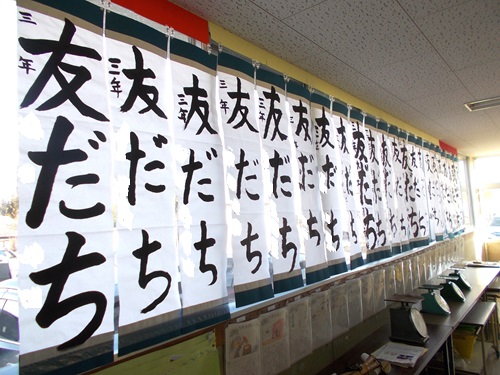 三年
友だち
三年
友だち
三年
友だち
三年
友だち
三年
友だち
三年
友だち
友だち
友だち
友だち
友だち
友だち
友だち
友だち